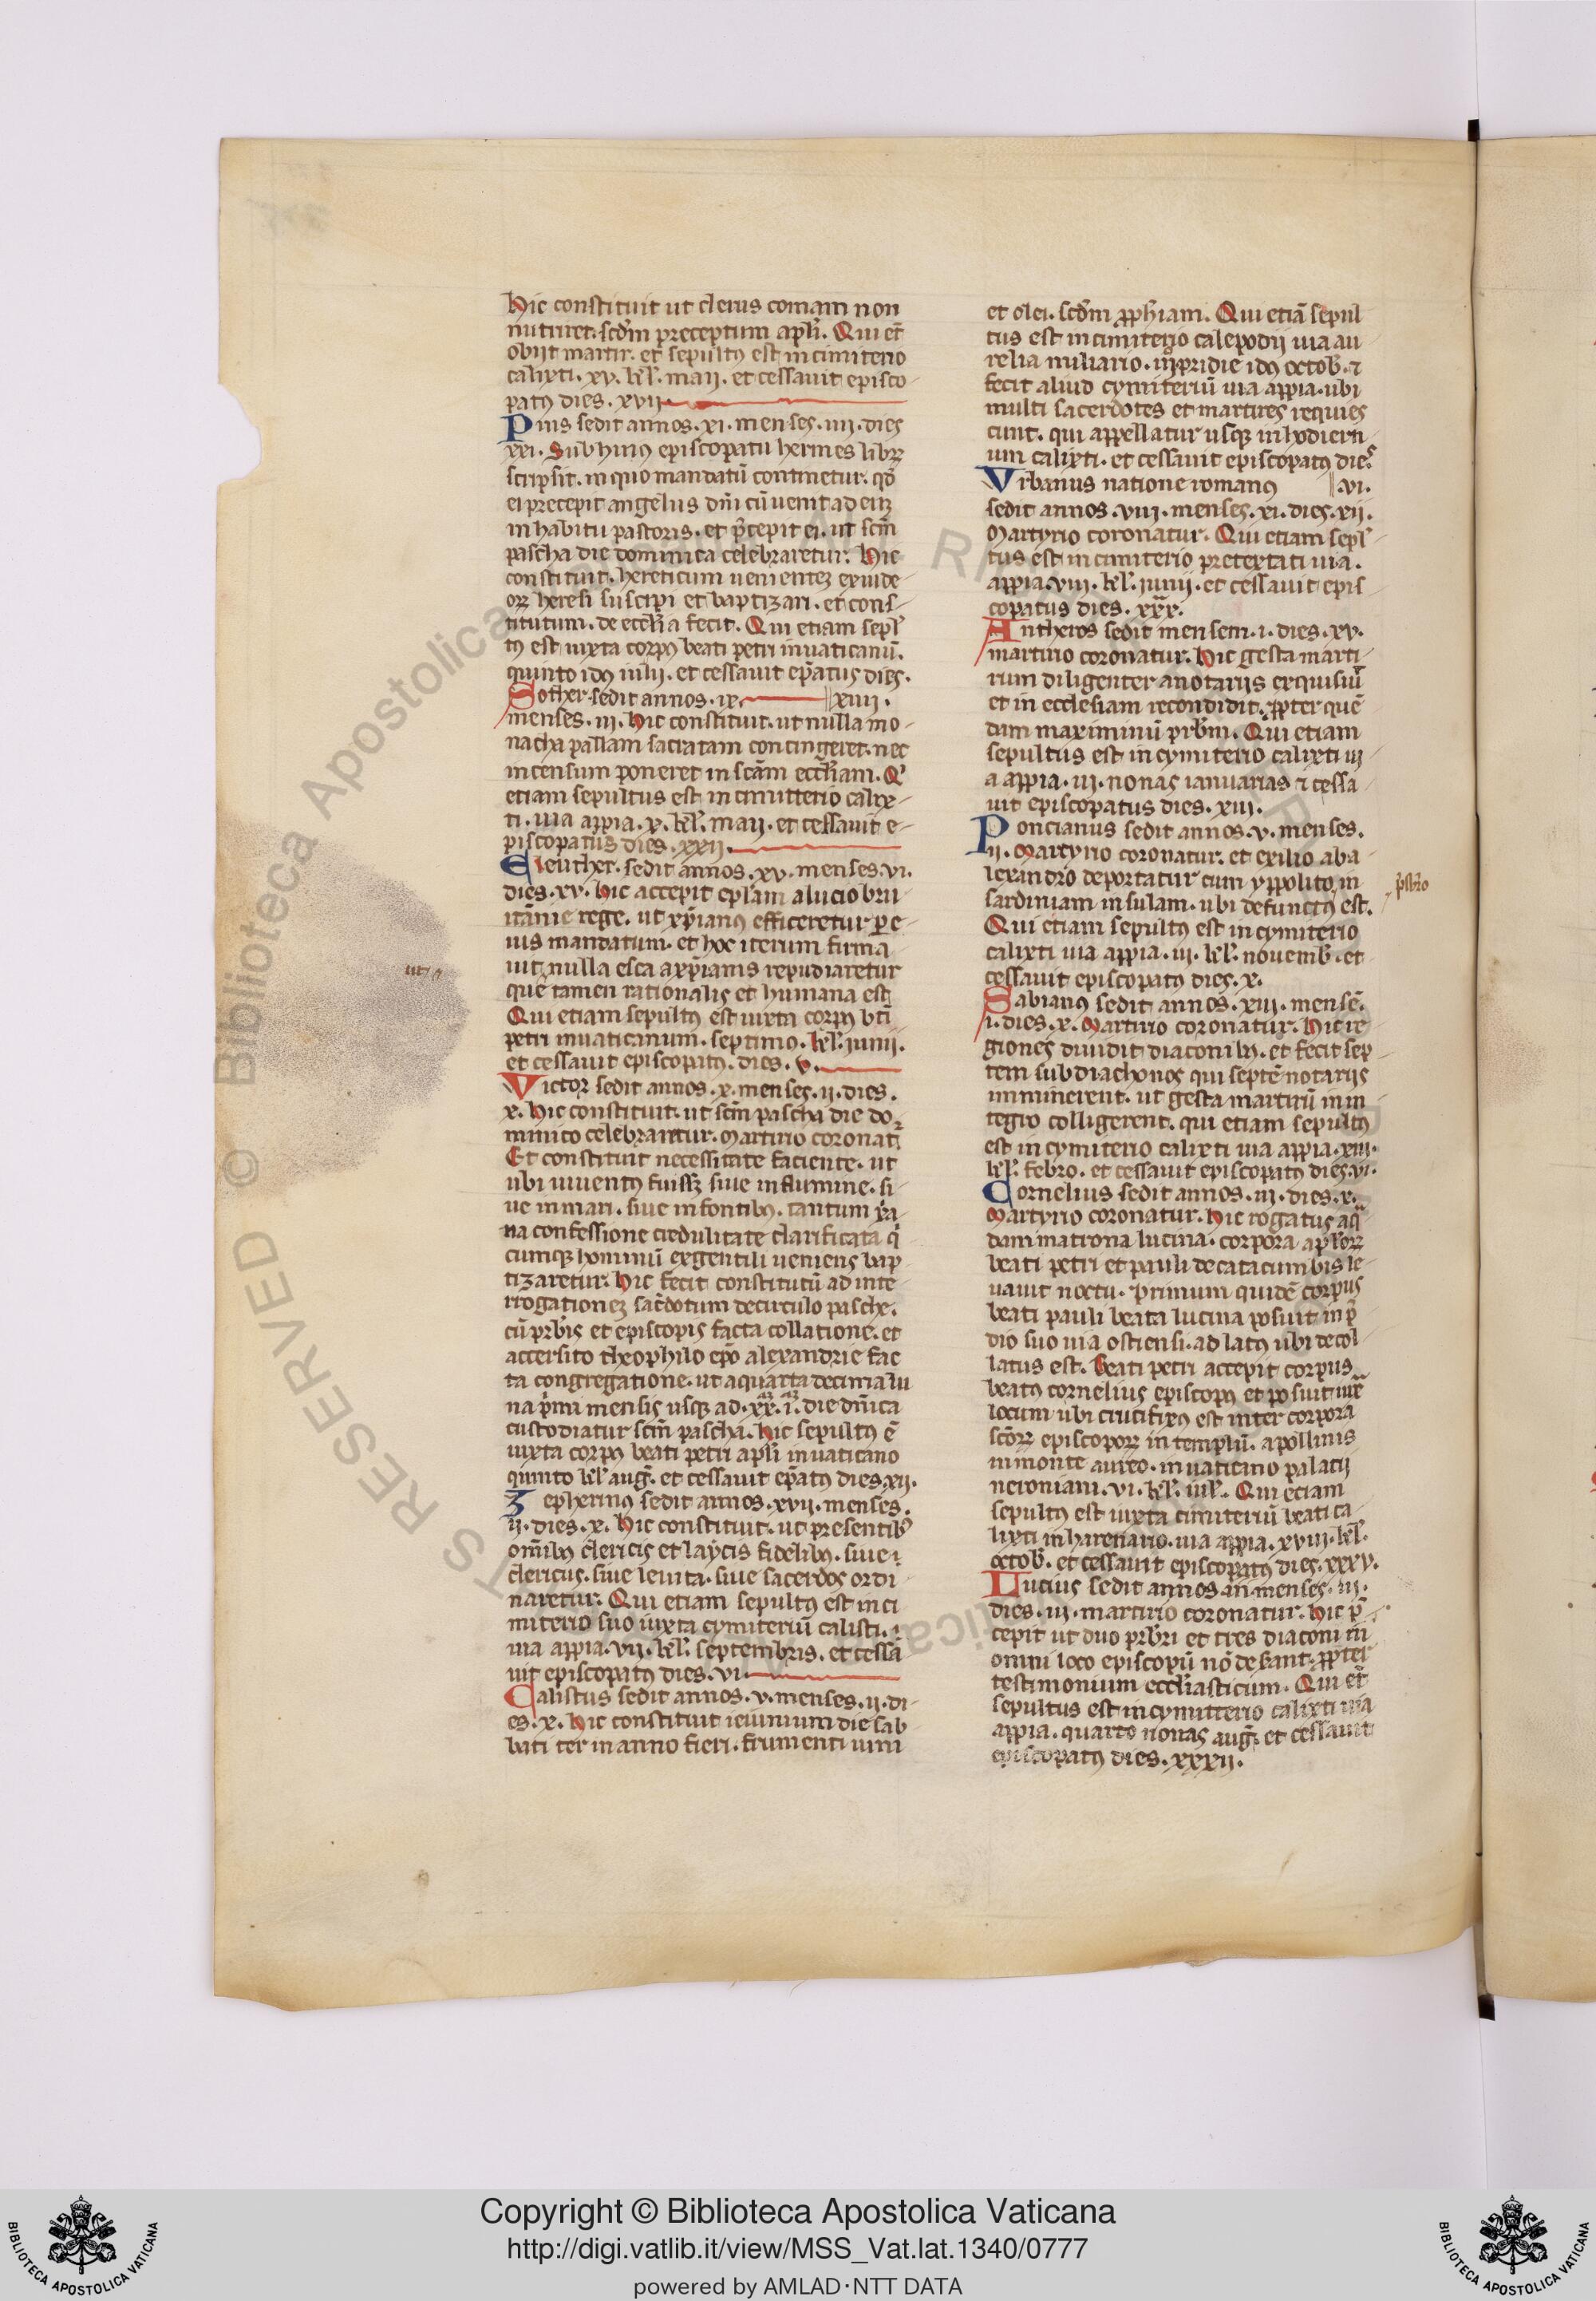 Hic constituit ut clerus comam non
nutriret. scdm preceptum apli. Qui et̄
obiit martir. et sepultꝰ est in cimiterio
calixti. xv. kl. maii. et cessauit episco-
patꝰ dies. xvii.
Pius sedit annos. xi. menses. iiii. dies
xxi. Sub huius episcopatu hermes libꝝ
scripsit. in quo mandatū continetur. qđ
ei precepit angelus dn̄i cū uenit ad eūꝫ
in habitu pastoris. et p̄cepit ei. ut scm̄
pascha die dominica celebraretur. Hic
constituit. hereticum uenienteꝫ ex iude-
oꝝ heresi suscipi et baptizari. et cons-
titutum. de eccl̄ia fecit. Qui etiam sepl̄
tꝰ est iuxta corpꝰ beati petri in uaticanū.
quinto idꝰ iulii. et cessauit ep̄atus dies.
Sother sedit annos. ix. xiiii.
menses. iii. Hic constituit. ut nulla mo-
nacha pallam sacratam contingeret. nec
incensum poneret in scām eccl̄iam. Qⁱ
etiam sepultus est in cimitterio calix-
ti. uia appia. x. kl. maii. et cessauit e-
piscopatus dies. xxii.
Eleuther. sedit annos. xv. menses. vi.
dies. xv. Hic accepit epl̄am a lucio bri-
tānie rege. ut xp̄ianꝰ efficeretur ꝑ e-
ius mandatum. et hoc iterum firma
uit nulla esca a xp̄ianis repudiaretur
que tamen rationalis et humana est
Qui etiam sepultꝰ est iuxta corpꝰ bt̄i
petri in uaticanum. septimo. kl. iunii.
et cessauit episcopatꝰ. dies. v.
Victor sedit annos. x. menses. ii. dies.
x. Hic constituit. ut scm̄ pascha die do-
minico celebraretur. Martirio coronat̄
Et constituit necessitate faciente. ut
ubi inuentꝰ fuissꝫ siue in flumine. si-
ue in mari. siue in fontibꝰ. tantum xp̄ia-
na confessione credulitate clarificata qͥ
cumqꝫ hominū ex gentili ueniens bap
tizaretur. Hic fecit constitutū ad inte-
rrogationeꝫ sac̄dotum de circulo pasche.
cū prb̄is et episcopis facta collatione. et
accersito theophilo ep̄o alexandrie fac
ta congregatione. ut a quarta decima lu
na p̄mi mensis usqꝫ ad. xx. i. die dn̄ica
custodiatur scm̄ pascha. Hic sepultꝰ ē
iuxta corpꝰ beati petri apl̄i in uaticano
quinto kl. aug̃. et cessauit ep̄atꝰ dies. xii.
Zepherinꝰ sedit annos. xvii. menses.
ii. dies. x. Hic constituit. ut presentibꝰ
om̄ibꝰ clericis et laycis fidelibꝰ. siue
clericus. siue leuita. siue sacerdos ordi-
naretur. Qui etiam sepultꝰ est in ci
miterio suo iuxta cymiteriū calisti.
uia appia. vii. kl. septembris. et cessa
uit episcopatꝰ dies. vi.
Calistus sedit annos. v. menses. ii. di-
es. x. Hic constituit ieiunium die sab
bati ter in anno fieri. frumenti uini
et olei. scdm ꝓphiam. Qui etiā sepul
tus est in cimiterio calepodii uia au
relia miliario. iii. pridie idꝰ octob. ⁊
fecit aliud cymiteriū uia appia. ubi
multi sacerdotes et martires requies
cunt. qui appellatur usqꝫ in hodiern
um calixti. et cessauit episcopatꝰ dies
Vrbanus natione romanꝰ vi.
sedit annos. viii. menses. xi. dies. xii.
Martyrio coronatur. Qui etiam sepl̄
tus est in cimiterio pretextati uia.
appia. viii. kl. iunii. et cessauit epis
copatus dies. xxx.
Antheros sedit mensem. i. dies. xv.
martirio coronatur. Hic gesta marti-
rum diligenter a notariis exquisiuit
et in ecclesiam recondidit. ꝓpter quē
dam maximinū prb̄m. Qui etiam
sepultus est in cymiterio calixti ui-
a appia. iii. nonas ianuarias ⁊ cessa-
uit episcopatus dies. xiii.
Poncianus sedit annos. v. menses.
ii. Martyrio coronatur. et exilio ab a-
lexandro deportatur cum yppolito in
p̄sb̄ro
sardiniam insulam. ubi defunctꝰ est.
Qui etiam sepultꝰ est in cymiterio
calixti uia appia. iii. kl. nouemb. et
cessauit episcopatꝰ dies. x.
Fabianꝰ sedit annos. xiii. mensē.
i. dies. x. Martirio coronatur. Hic re-
giones diuidit diaconibꝰ. et fecit sep-
tem subdiachonos qui septē notariis
imminerent. ut gesta martirū in in
tegro colligerent. qui etiam sepultꝰ
est in cymiterio calixti uia appia. xiii.
kl. febro. et cessauit episcopatꝰ dies. vi.
Cornelius sedit annos. iii. dies. x.
Martyrio coronatur. Hic rogatus a q̄
dam matrona lucina. corpora apl̄oꝝ
beati petri et pauli de catacumbis le-
uauit noctu. Primum quidē corpus
beati pauli beata lucina posuit in p̄-
dio suo uia ostiensi. ad latꝰ ubi decol-
latus est. Beati petri accepit corpus
beatꝰ cornelius episcopꝰ et posuit iux̄
locum ubi crucifixꝰ est inter corpora
sc̄oꝝ episcopoꝝ in templū. apollinis
in monte aureo. in uaticano palacii
neroniani. vi. kl. iul. Qui etiam
sepultꝰ est iuxta cimiteriū beati ca-
lixti in harenario. uia appia. xviii. kl.
octob. et cessauit episcopatꝰ dies. xxxv.
Lucius sedit annos menses. iii.
dies. iii. martirio coronatur. Hic p̄-
cepit ut duo prb̄ri et tres diaconi in
omni loco episcopū nō desant. ꝓpter
testimonium eccl̄iasticum. Qui et̄
sepultus est in cymitterio calixti uia
appia. quarto nonas aug̃. et cessauit
episcopatꝰ dies. xxxii.
Copyright © Biblioteca Apostolica Vaticana
http://digi.vatlib.it/view/MSS_Vat.lat.1340/0777
powered by AMLAD·NTT DATA
BIBLIOTECA APOSTOLICA VATICANA
BIBLIOTECA APOSTOLICA VATICANA